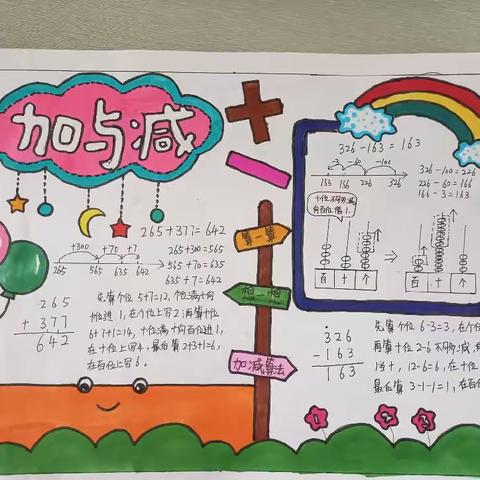 加与减
265+377=642
+300 +70 +7
265 565 635 642
265+300=565
565+70=635
635+7=642
265
+ 377
642
先算个位5+7=12,个位满十向
十位进1,在个位上写2;再算十位
6+7+1=14,十位满十向百位进1,
在十位上写4,最后算2+3+1=6,
在百位上写6。
算一算
想一想
加减算法
326-163=163
-3 -60 -100
163 166 226 326
326-100=226
226-60=166
166-3=163
十位不够减,
向百位借1.
百 十 个
百 十 个
326
- 163
163
先算个位6-3=3,在个位
再算十位2-6不够减,
当十,12-6=6,在十位
最后算3-1-1=1,在百
1 2 3